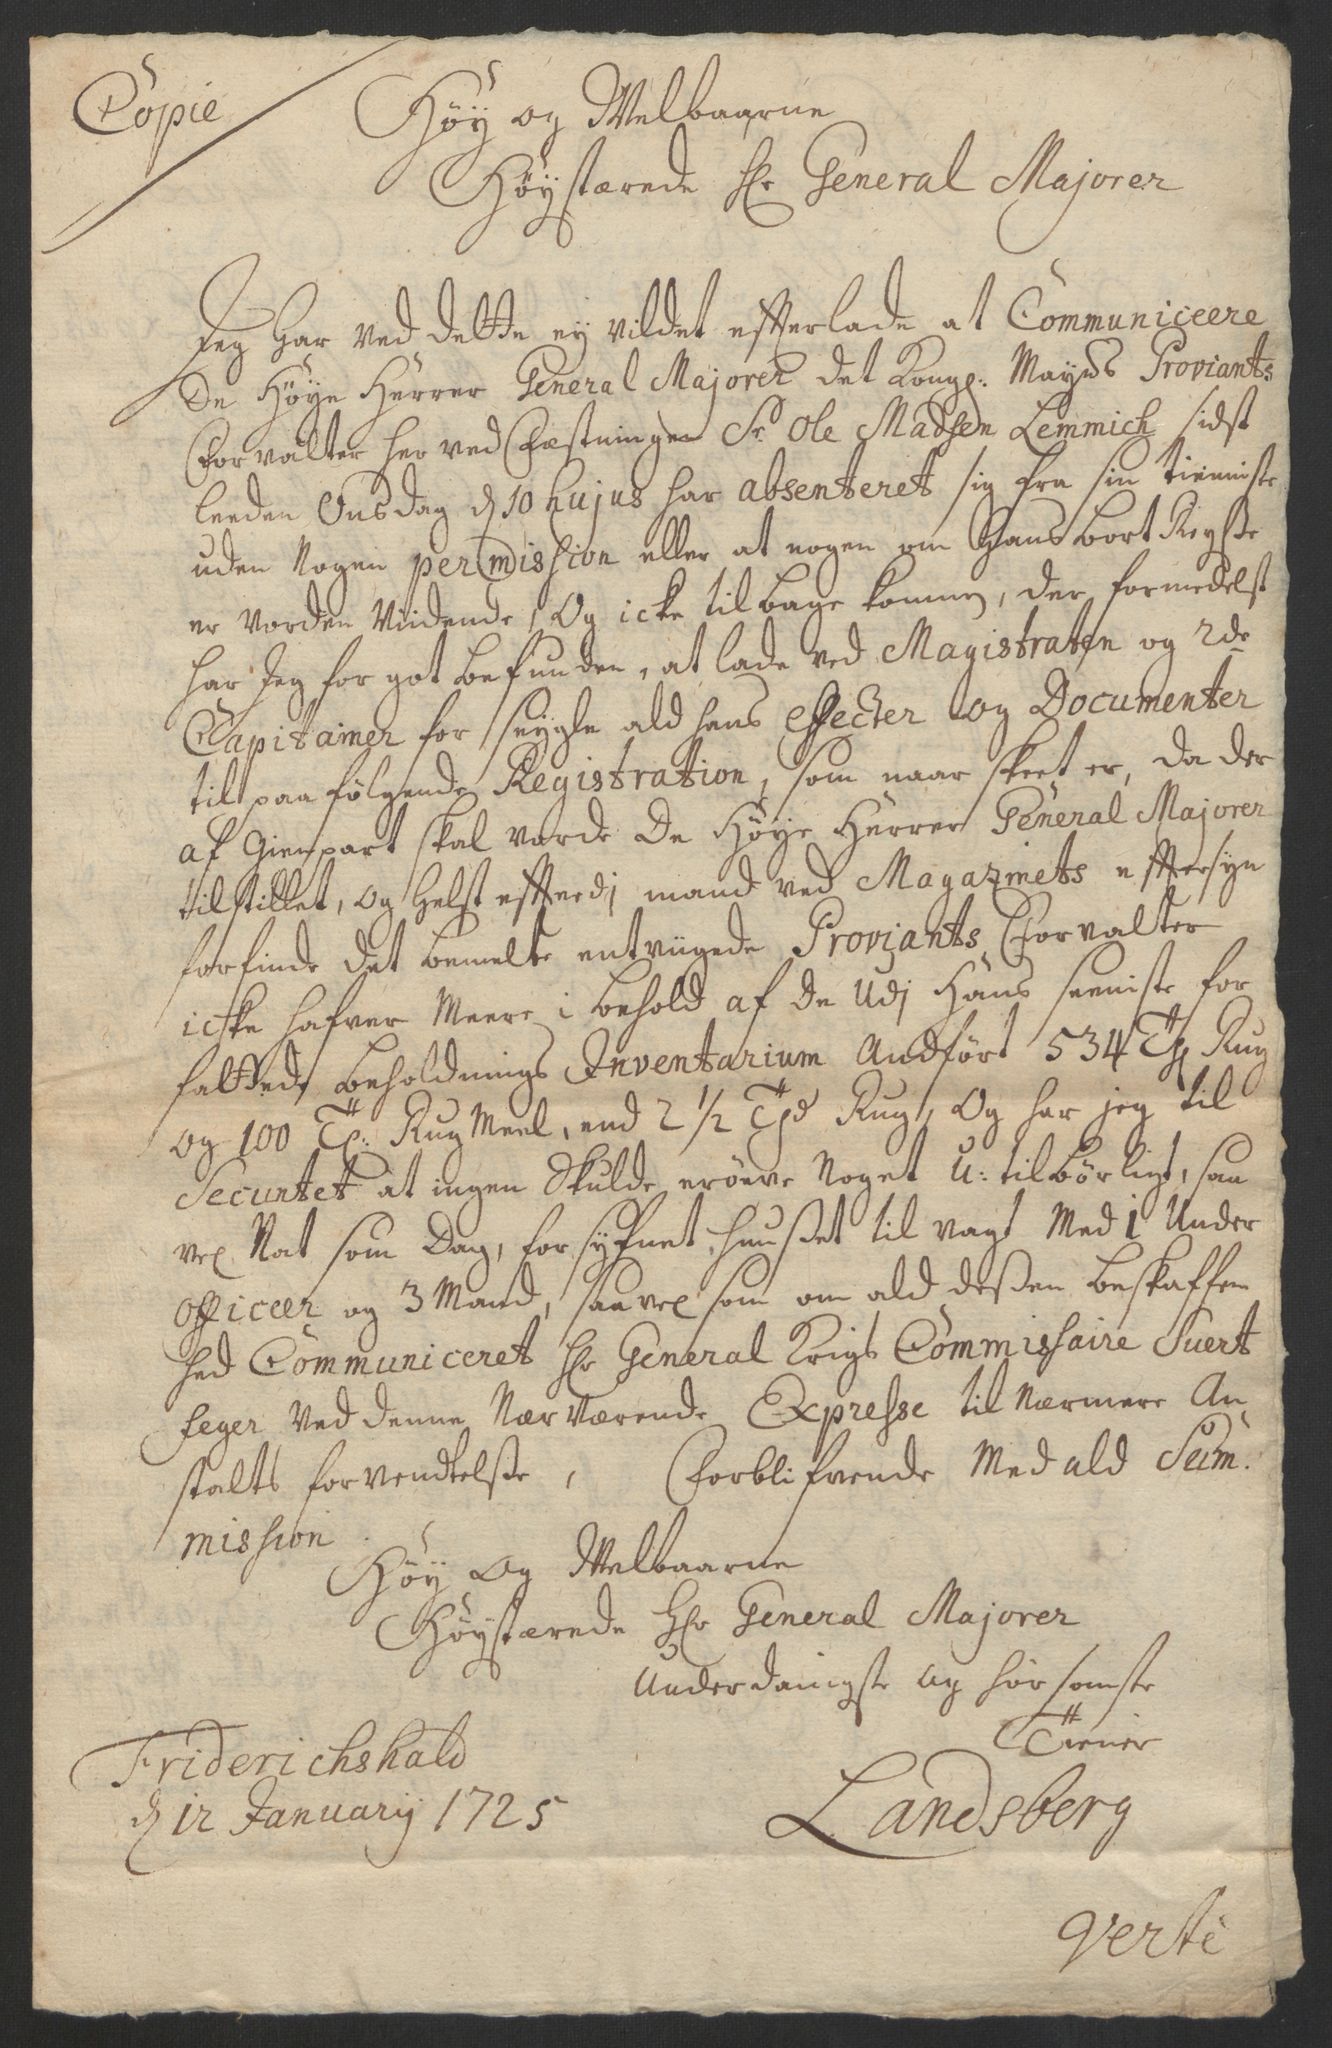 Copie
Höy og Welbaarne
Höystærede Hr General Majorer
Jeg har ved dette ej vildet efterlade at Communiceere
De Höye Herrer General Majorer det Kongl: Mayts Proviants
Forvalter her ved Fæstningen Sr Ole Madsen Lemmich sidst
leeden Onsdag d 10 hujus har absenteret sig fra sin tienniste
uden Nogen permission eller at nogen om hans bort Reyße
er vorden vidende, Og icke tilbage kommen, der formedelst
har Jeg for got befunden, at lade ved Magistraten og 2de
Capitainer for seygle ald hans Effecter og Documenter
til paa følgende Registration, som naar skeet er, da der
af Gienpart skal vorde De Höye Herrer General Majorer
tilstillet, og helst efterdj mand ved Magazinets eftersyn
forfinde det bemelte entvigede Provjants Forvalter
icke hafver Meere i behold af de Udj Hans seeniste for
fattede beholdnings Inventarium Andført 534 Td Rug
og 100 Td: Rug Meel, end 2 1/2 Td Rug, Og har jeg til
Securitet at ingen Skulde eröve Noget U: tilbörligt, saa
vel Nat som Dag, forsyfnet huußet til vagt Med 1 Under
Officeer og 3 Mand, saavel som om ald deßen beskaffen
hed Communiceret Hr General Krigs Commissaire Suert
feger Ved denne Nærværende Expresse til Nærmere An
stalts forvendtelse, Forblifvende Med ald Sum.
mission
Höy Og Welbaarne
Höystærede Hr General Majorer
Underdanigste og hör somste
Tiener
Landsberg
Friderichshald
d 12 January 1725
Verte